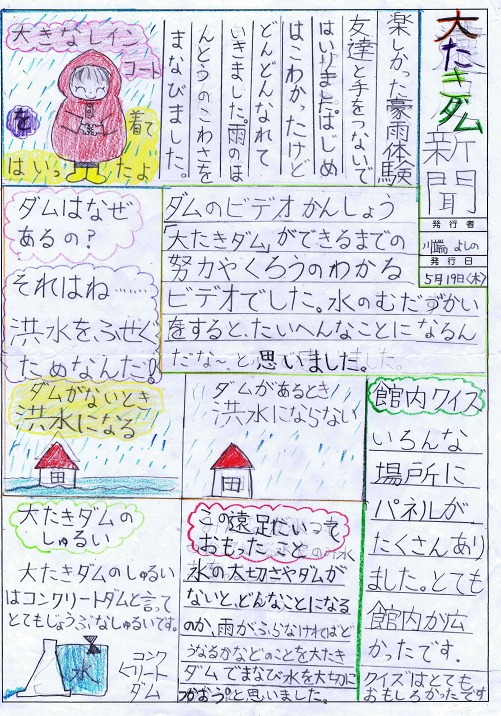 大たきダム新聞
発行者
川端 よしの
発行日
5月19日(木)
楽しかった豪雨体験
友達と手をつないで
はいりました。はじめ
はこわかったけど
どんどんなれて
いきました。雨のほ
んとうのこわさを
まなびました。
大きなレイン
コート
を
着て
はいったよ
ダムはなぜ
あるの?
それはね……
洪水を、ふせぐ
ためなんだ!!
ダムのビデオかんしょう
「大たきダム」ができるまでの
努力やくろうのわかる
ビデオでした。水のむだづかい
をすると、たいへんなことになるん
だな〜と、思いました。
ダムがないとき
洪水になる
ダムがあるとき
洪水にならない
館内クイズ
いろんな
場所に
パネルが
たくさんあり
ました。とても
館内が広
かったです。
クイズはとても
おもしろかったです
大たきダムの
しゅるい
大たきダムのしゅるい
はコンクリートダムと言って
とてもじょうぶなしゅるいです。
水
コンク
リート
ダム
この遠足だいって
おもったこと
水の大切さやダムが
ないと、どんなことになる
のか、雨が、ふらなければど
うなるかなどのことを大たき
ダムでまなび水を大切に
つかおう!と思いました。